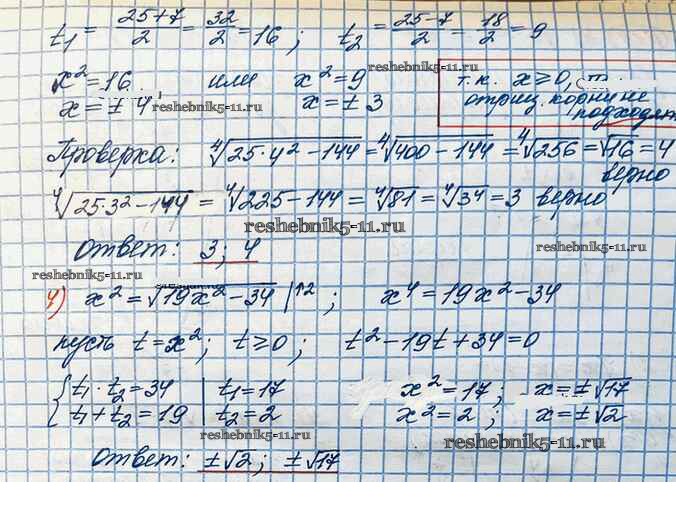 t₁ = (25+7)/2 = 32/2 = 16; t₂ = (25-7)/2 = 18/2 = 9
x² = 16 или x² = 9
x = ± 4; x = ± 3
т.к. x ≥ 0, то
отриц. корни не
подходят
reshebnik5-11.ru
reshebnik5-11.ru
reshebnik5-11.ru
Проверка: ⁴√(25·4² - 144) = ⁴√(400 - 144) = ⁴√256 = √16 = 4
верно
⁴√(25·3² - 144) = ⁴√(225 - 144) = ⁴√81 = ⁴√3⁴ = 3 верно
reshebnik5-11.ru
Ответ: 3; 4
reshebnik5-11.ru
reshebnik5-11.ru
4) x² = √(19x² - 34) |↑2; x⁴ = 19x² - 34
пусть t = x²; t ≥ 0; t² - 19t + 34 = 0
{ t₁ · t₂ = 34 | t₁ = 17 x² = 17; x = ±√17
t₁ + t₂ = 19 | t₂ = 2 x² = 2; x = ±√2
reshebnik5-11.ru
reshebnik5-11.ru
Ответ: ±√2; ±√17